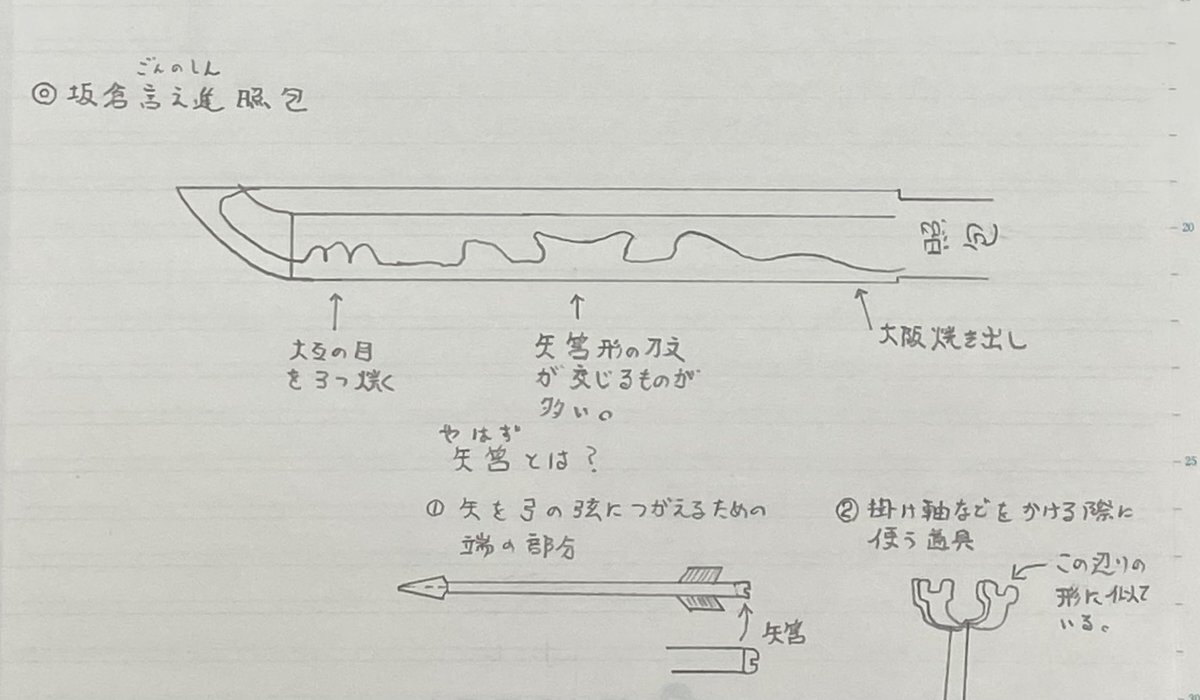 ごんのしん
◎坂倉言之進照包
照包
大互の目
を3つ焼く
矢筈形の刃文
が交じるものが
多い。
大阪焼き出し
やはず
矢筈とは?
① 矢を弓の弦につがえるための
端の部分
矢筈
② 掛け軸などをかける際に
使う道具
この辺りの
形に似て
いる。
20
25
30